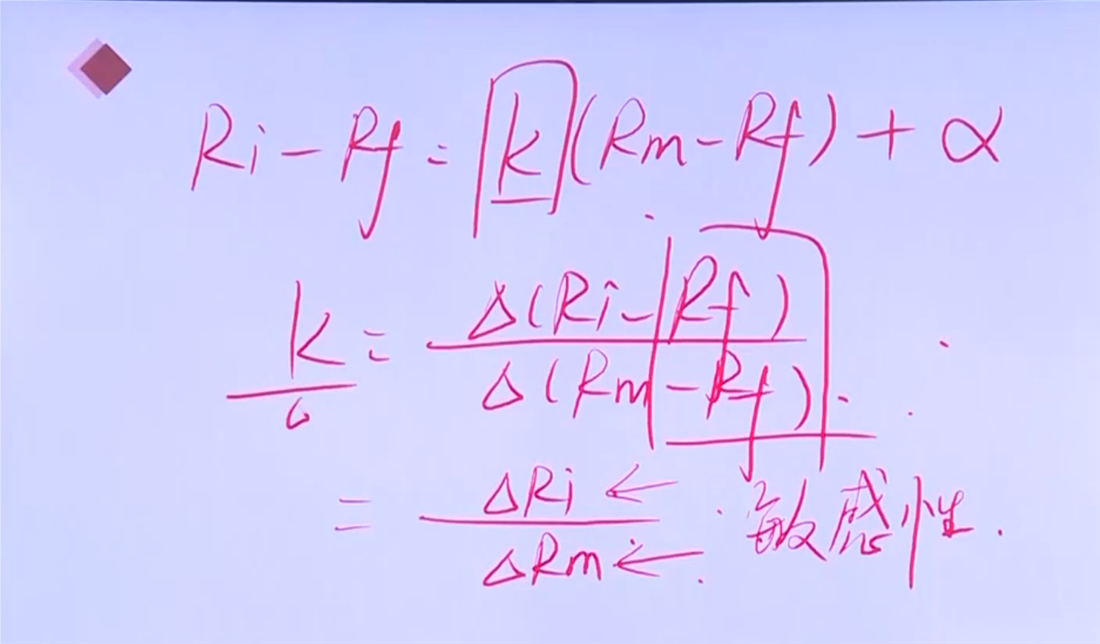 Ri - Rf = k (Rm - Rf) + α
k = Δ(Ri - Rf) / Δ(Rm - Rf)
= ΔRi ← / ΔRm ← 敏感性.